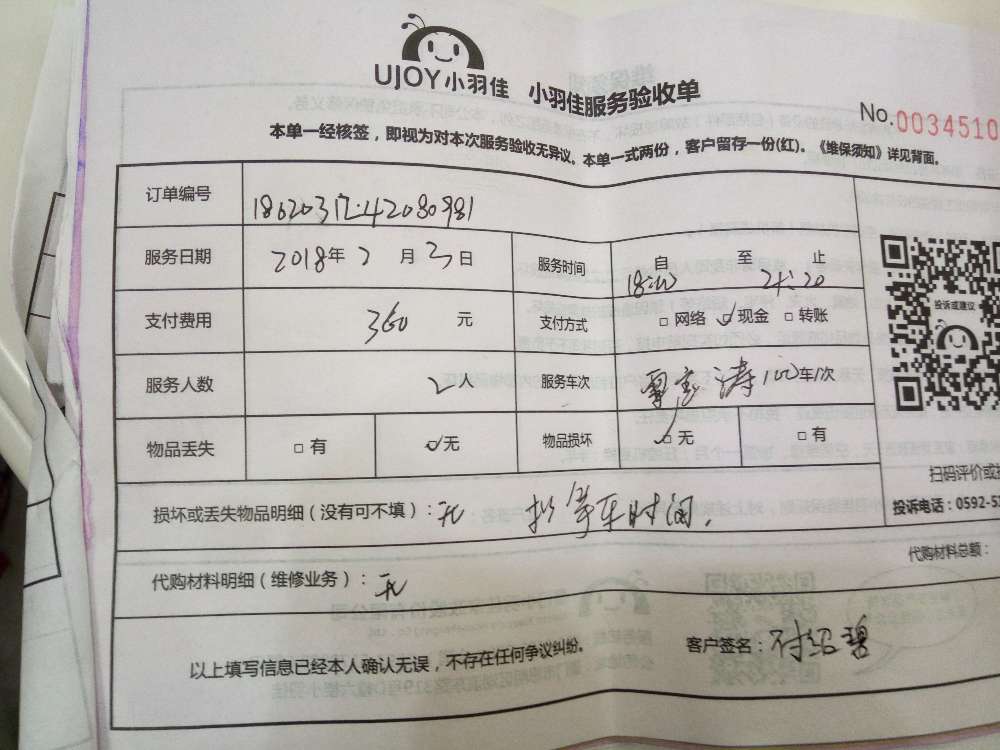 UJOY小羽佳 小羽佳服务验收单
No.0034510
本单一经核签，即视为对本次服务验收无异议。本单一式两份，客户留存一份(红)。《维保须知》详见背面。
订单编号
服务日期 2018年2月3日 服务时间 自 至 止
18:00 21:20
支付费用 360 元 支付方式 □网络 ☑现金 □转账
服务人数 2人 服务车次 涛100车/次
物品丢失 □有 ☑无 物品损坏 ☑无 □有
投诉或建议
扫码评价或投
投诉电话：0592-52
损坏或丢失物品明细（没有可不填）：无 等车时间，
代购材料总额：
代购材料明细（维修业务）：无
以上填写信息已经本人确认无误，不存在任何争议纠纷。
客户签名：付绍碧